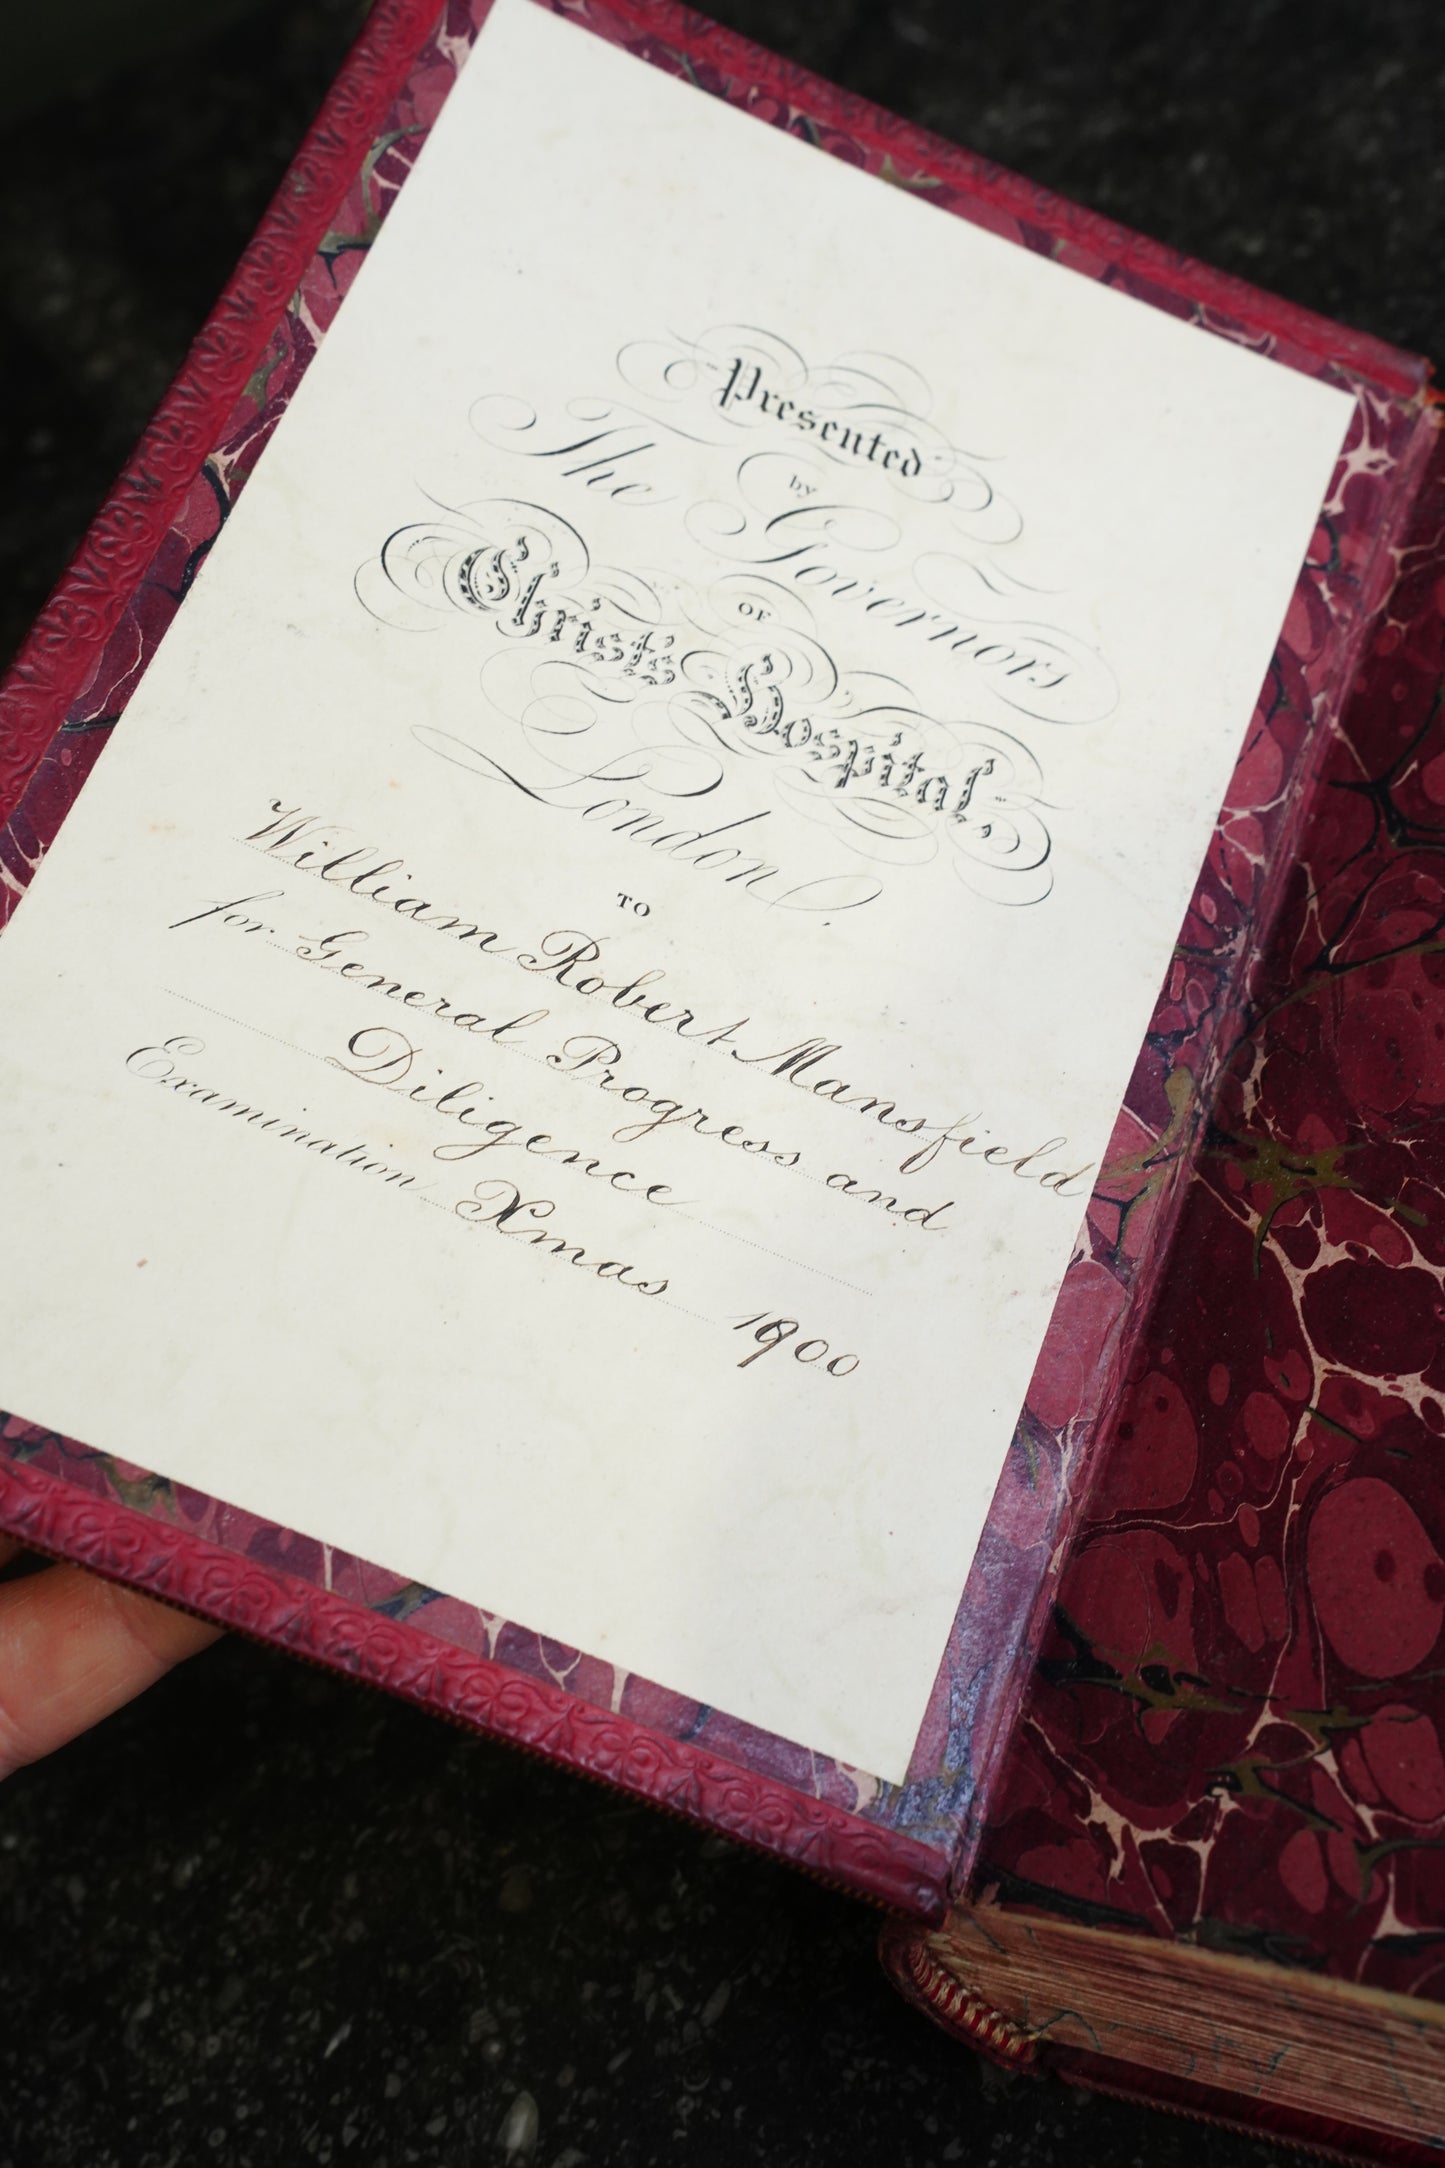 Presented
by
The Governors
OF
Christ's Hospital,
London.
TO
William Robert Mansfield
for General Progress and
Diligence
Examination Xmas 1900